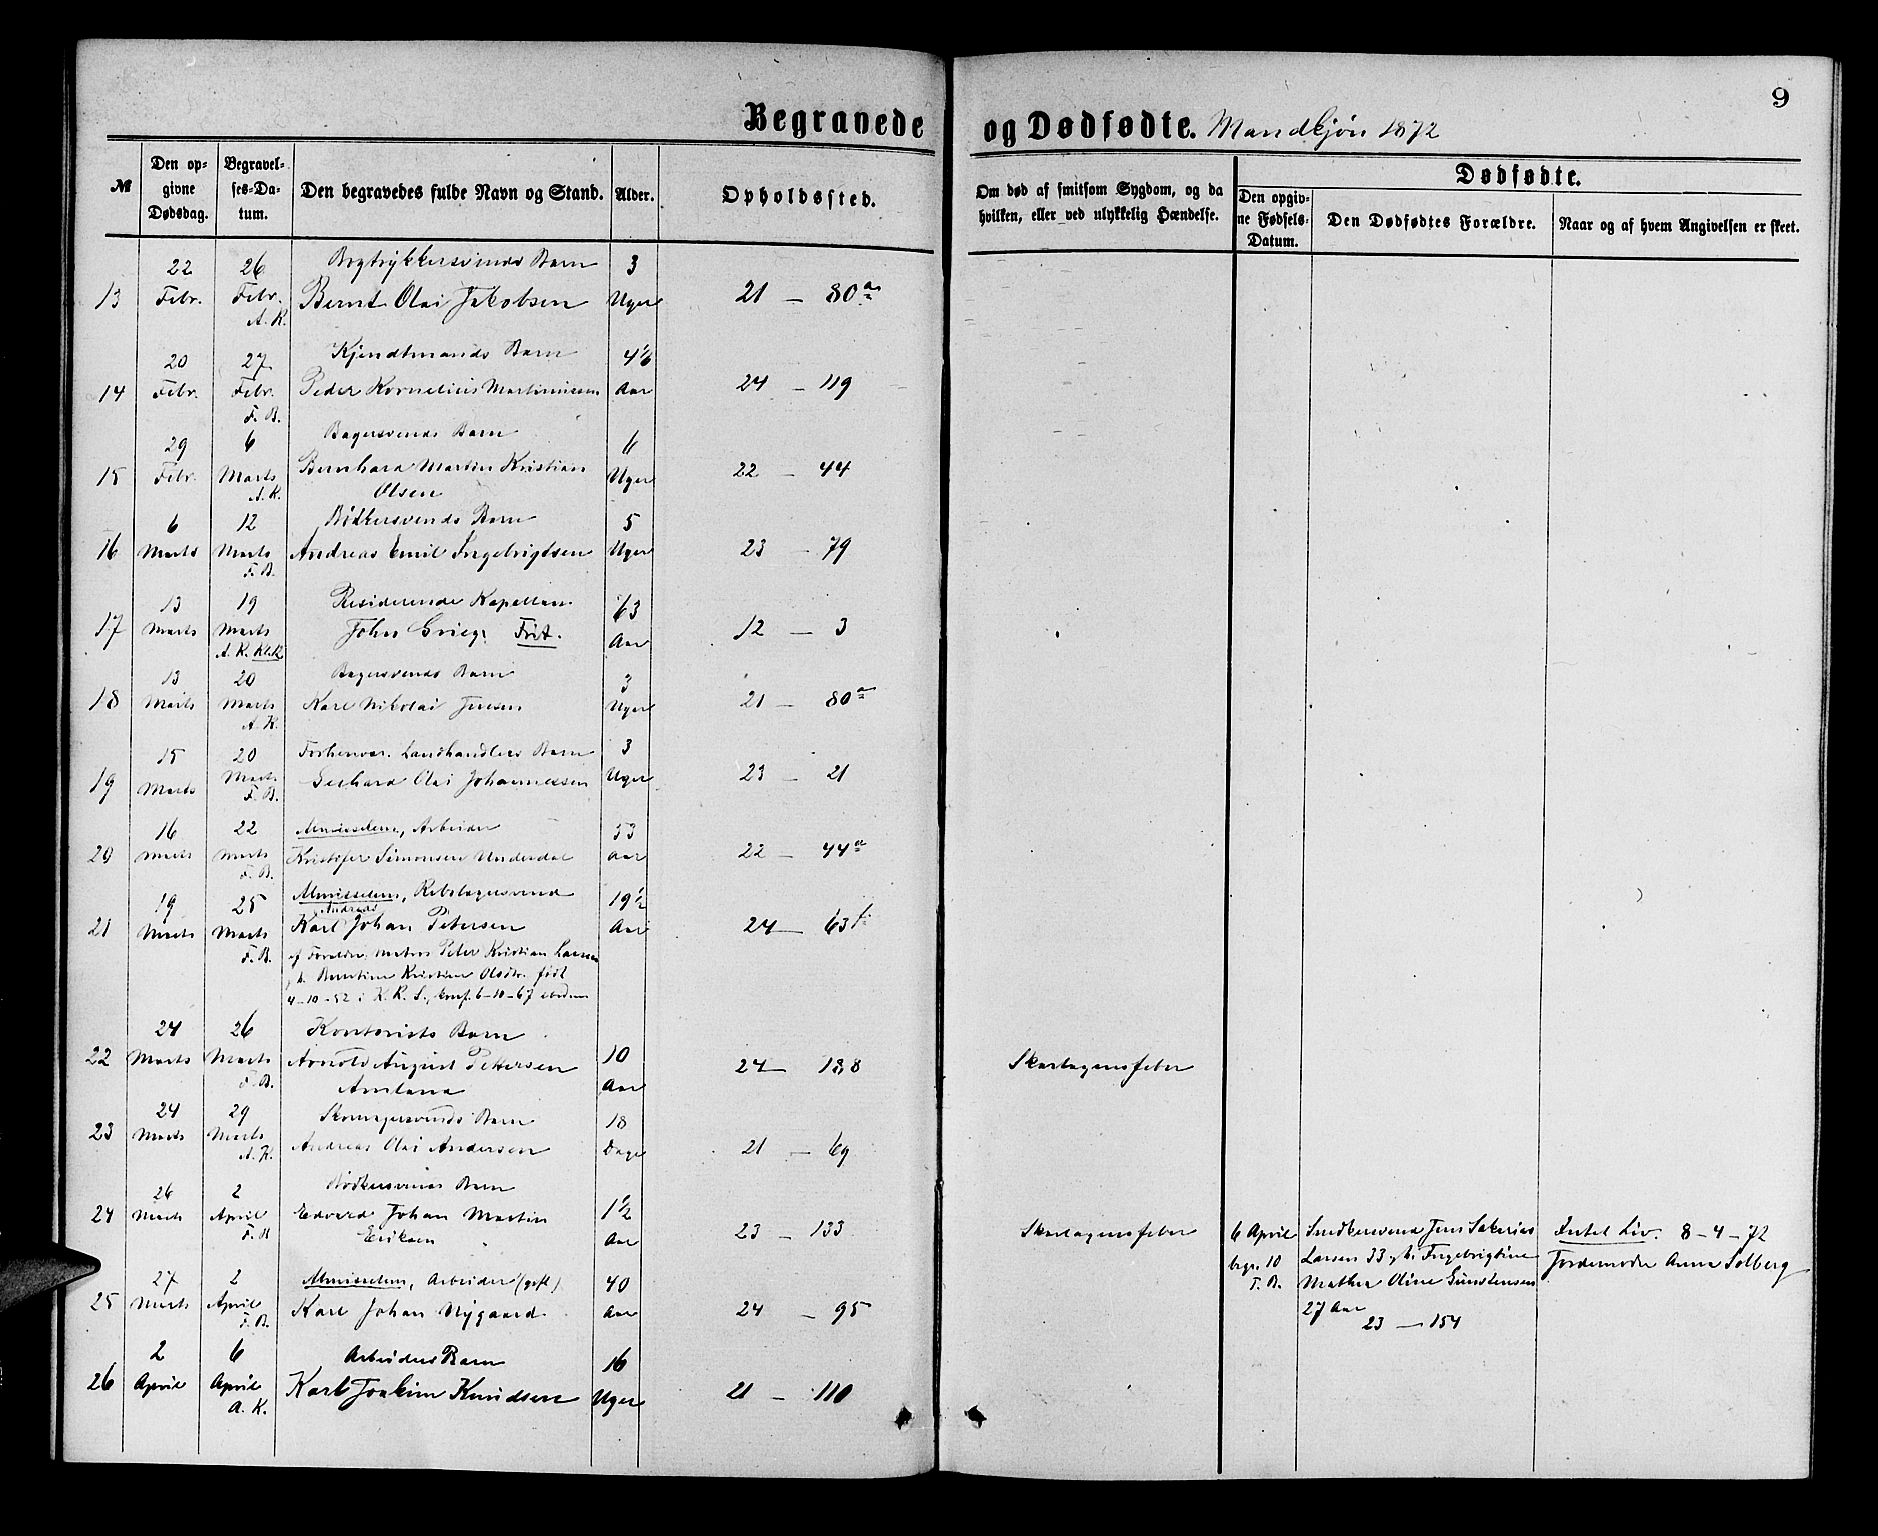 9
Begravede og Dødfødte. Mandkjøn 1872
№
Den opgivne Dødsdag.
Begravelses-Datum.
Den begravedes fulde Navn og Stand.
Alder.
Opholdssted.
Om død af smitsom Sygdom, og da hvilken, eller ved ulykkelig Hændelse.
Dødfødte.
Den opgivne Fødsels-Datum.
Den Dødfødtes Forældre.
Naar og af hvem Angivelsen er skeet.
22 26 Bogtrykkersvends Barn 3
13 Febr. Febr. Bernt Olai Jakobsen Uger 21 — 80a
A. K.
20 27 Kjendtmands Barn 4 1/6
14 Febr. Febr. Peder Kornelius Martinusen Aar 24 — 119
F. B.
29 6 Bagersvends Barn 6
15 Febr. Marts Bernhard Martin Kristian Uger 22 — 44
A. K. Olsen
6 12 Bødkersvends Barn 5
16 Marts Marts Andreas Emil Ingebrigtsen Uger 23 — 79
F. B.
13 19 Residerende Kapellan 63
17 Marts Marts John Grieg. Frit. Aar 12 — 3
A. K. Kl.K
13 20 Bagersvends Barn 3
18 Marts Marts Karl Nikolai Jensen Uger 21 — 80a
A. K.
15 20 Forhenvær. Landhandlers Barn 3
19 Marts Marts Gerhard Olai Johannessen Uger 23 — 21
F. B.
16 22 Almisselem, Arbeider 53
20 Marts Marts Kristofer Simonsen Underdal Aar 22 — 44a
F. B.
19 25 Almisselem, Rebslagersvend 19 1/2
Andreas
21 Marts Marts Karl Johan Petersen Aar 24 — 63b
F. B. af Forældre, Matros Peter Kristian Larsen
g. h. Berntine Kristine Olsdtr. født
4–10–52 i K. K. S., konf. 6–10–67 ibidem
24 26 Kontorists Barn
22 Marts Marts Arnold August Pettersen 10 24 — 138 Skarlagensfeber
F. B. Amland Aar
24 29 Skomagersvends Barn 18
23 Marts Marts Andreas Olai Andersen Dage 21 — 69
A. K.
26 2 Bødkersvends Barn
24 Marts April Edvard Johan Martin 1 1/2 23 — 133 Skarlagensfeber
F. B Eriksen Aar
27 2 Almisselem, Arbeider (gift) 40
25 Marts April Karl Johan Nygaard Aar 24 — 95
F. B.
2 6 Arbeiders Barn 16
26 April April Karl Joakim Knudsen Uger 21 — 110
A. K.
6 April
begr. 10
F. B.
Snedkersvend Jens Sakarias
Larsen 33 g. h. Ingebrigtine
Mathea Oline Gunstensen
27 Aar
23 — 154
Intet Liv. 8–4–72
Jordemoder Anna Solberg